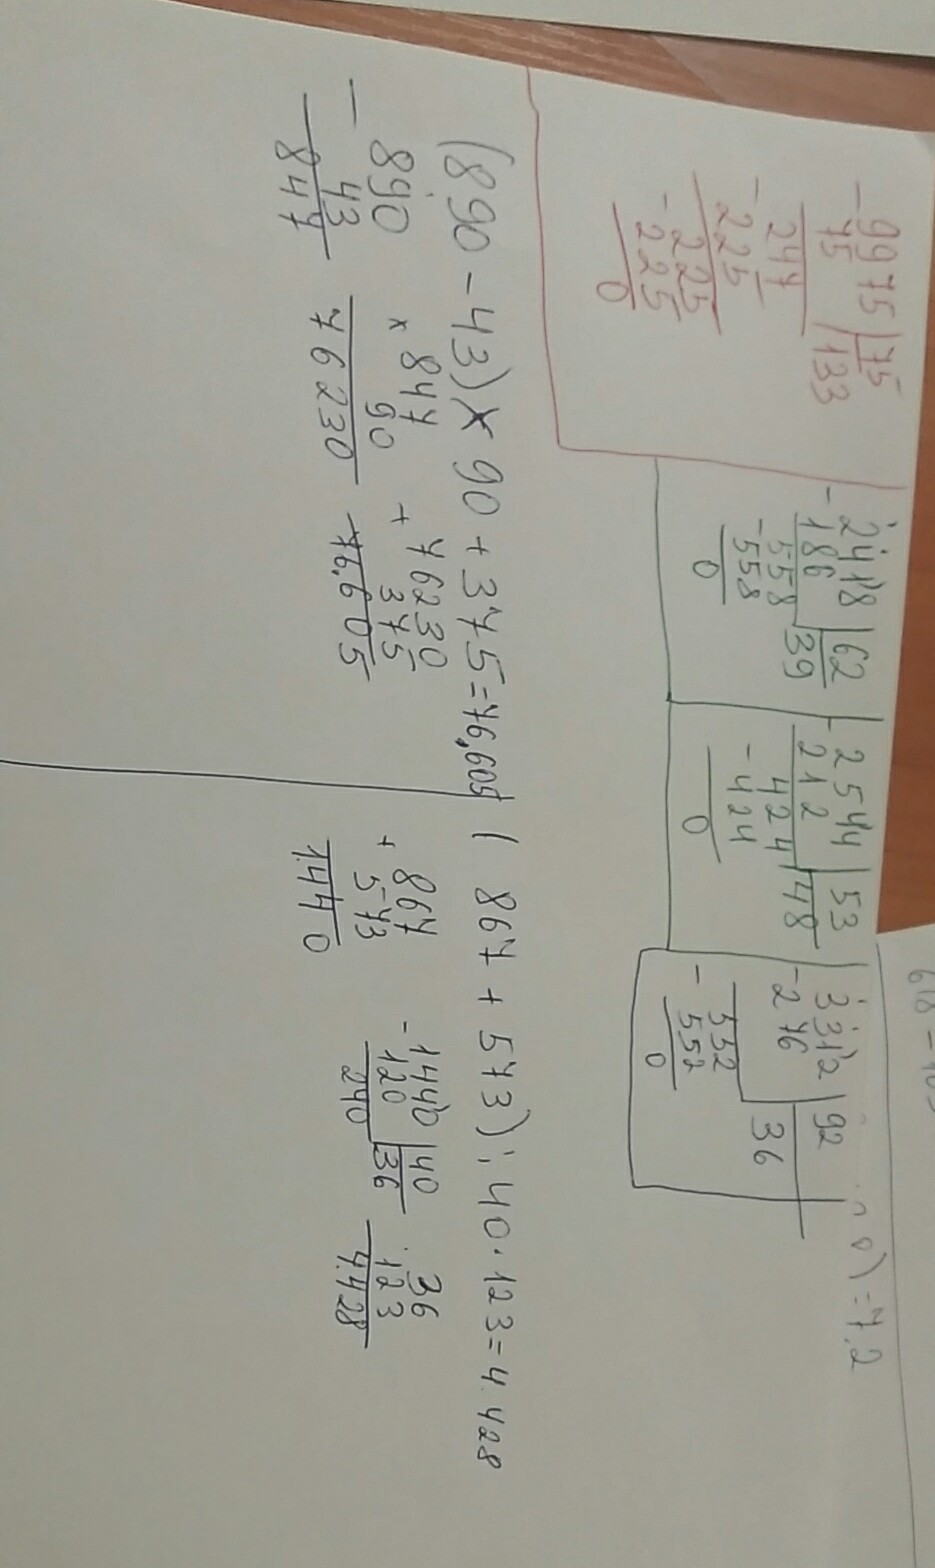 - 9975 | 75
75 | 133
- 247
- 225
- 225
- 225
0
- 2418 | 62
186 | 39
558
- 558
0
- 2544 | 53
212 | 48
424
- 424
0
3312 | 92
- 276 | 36
552
- 552
0
) = 7.2
(890 - 43) x 90 + 375 = 76,605
- 890
43
847
x 847
90
76230
+ 76230
375
76,605
(867 + 573) : 40 · 123 = 4.428
+ 867
573
1.440
- 1440 | 40
120 | 36
240
· 36
123
4.428